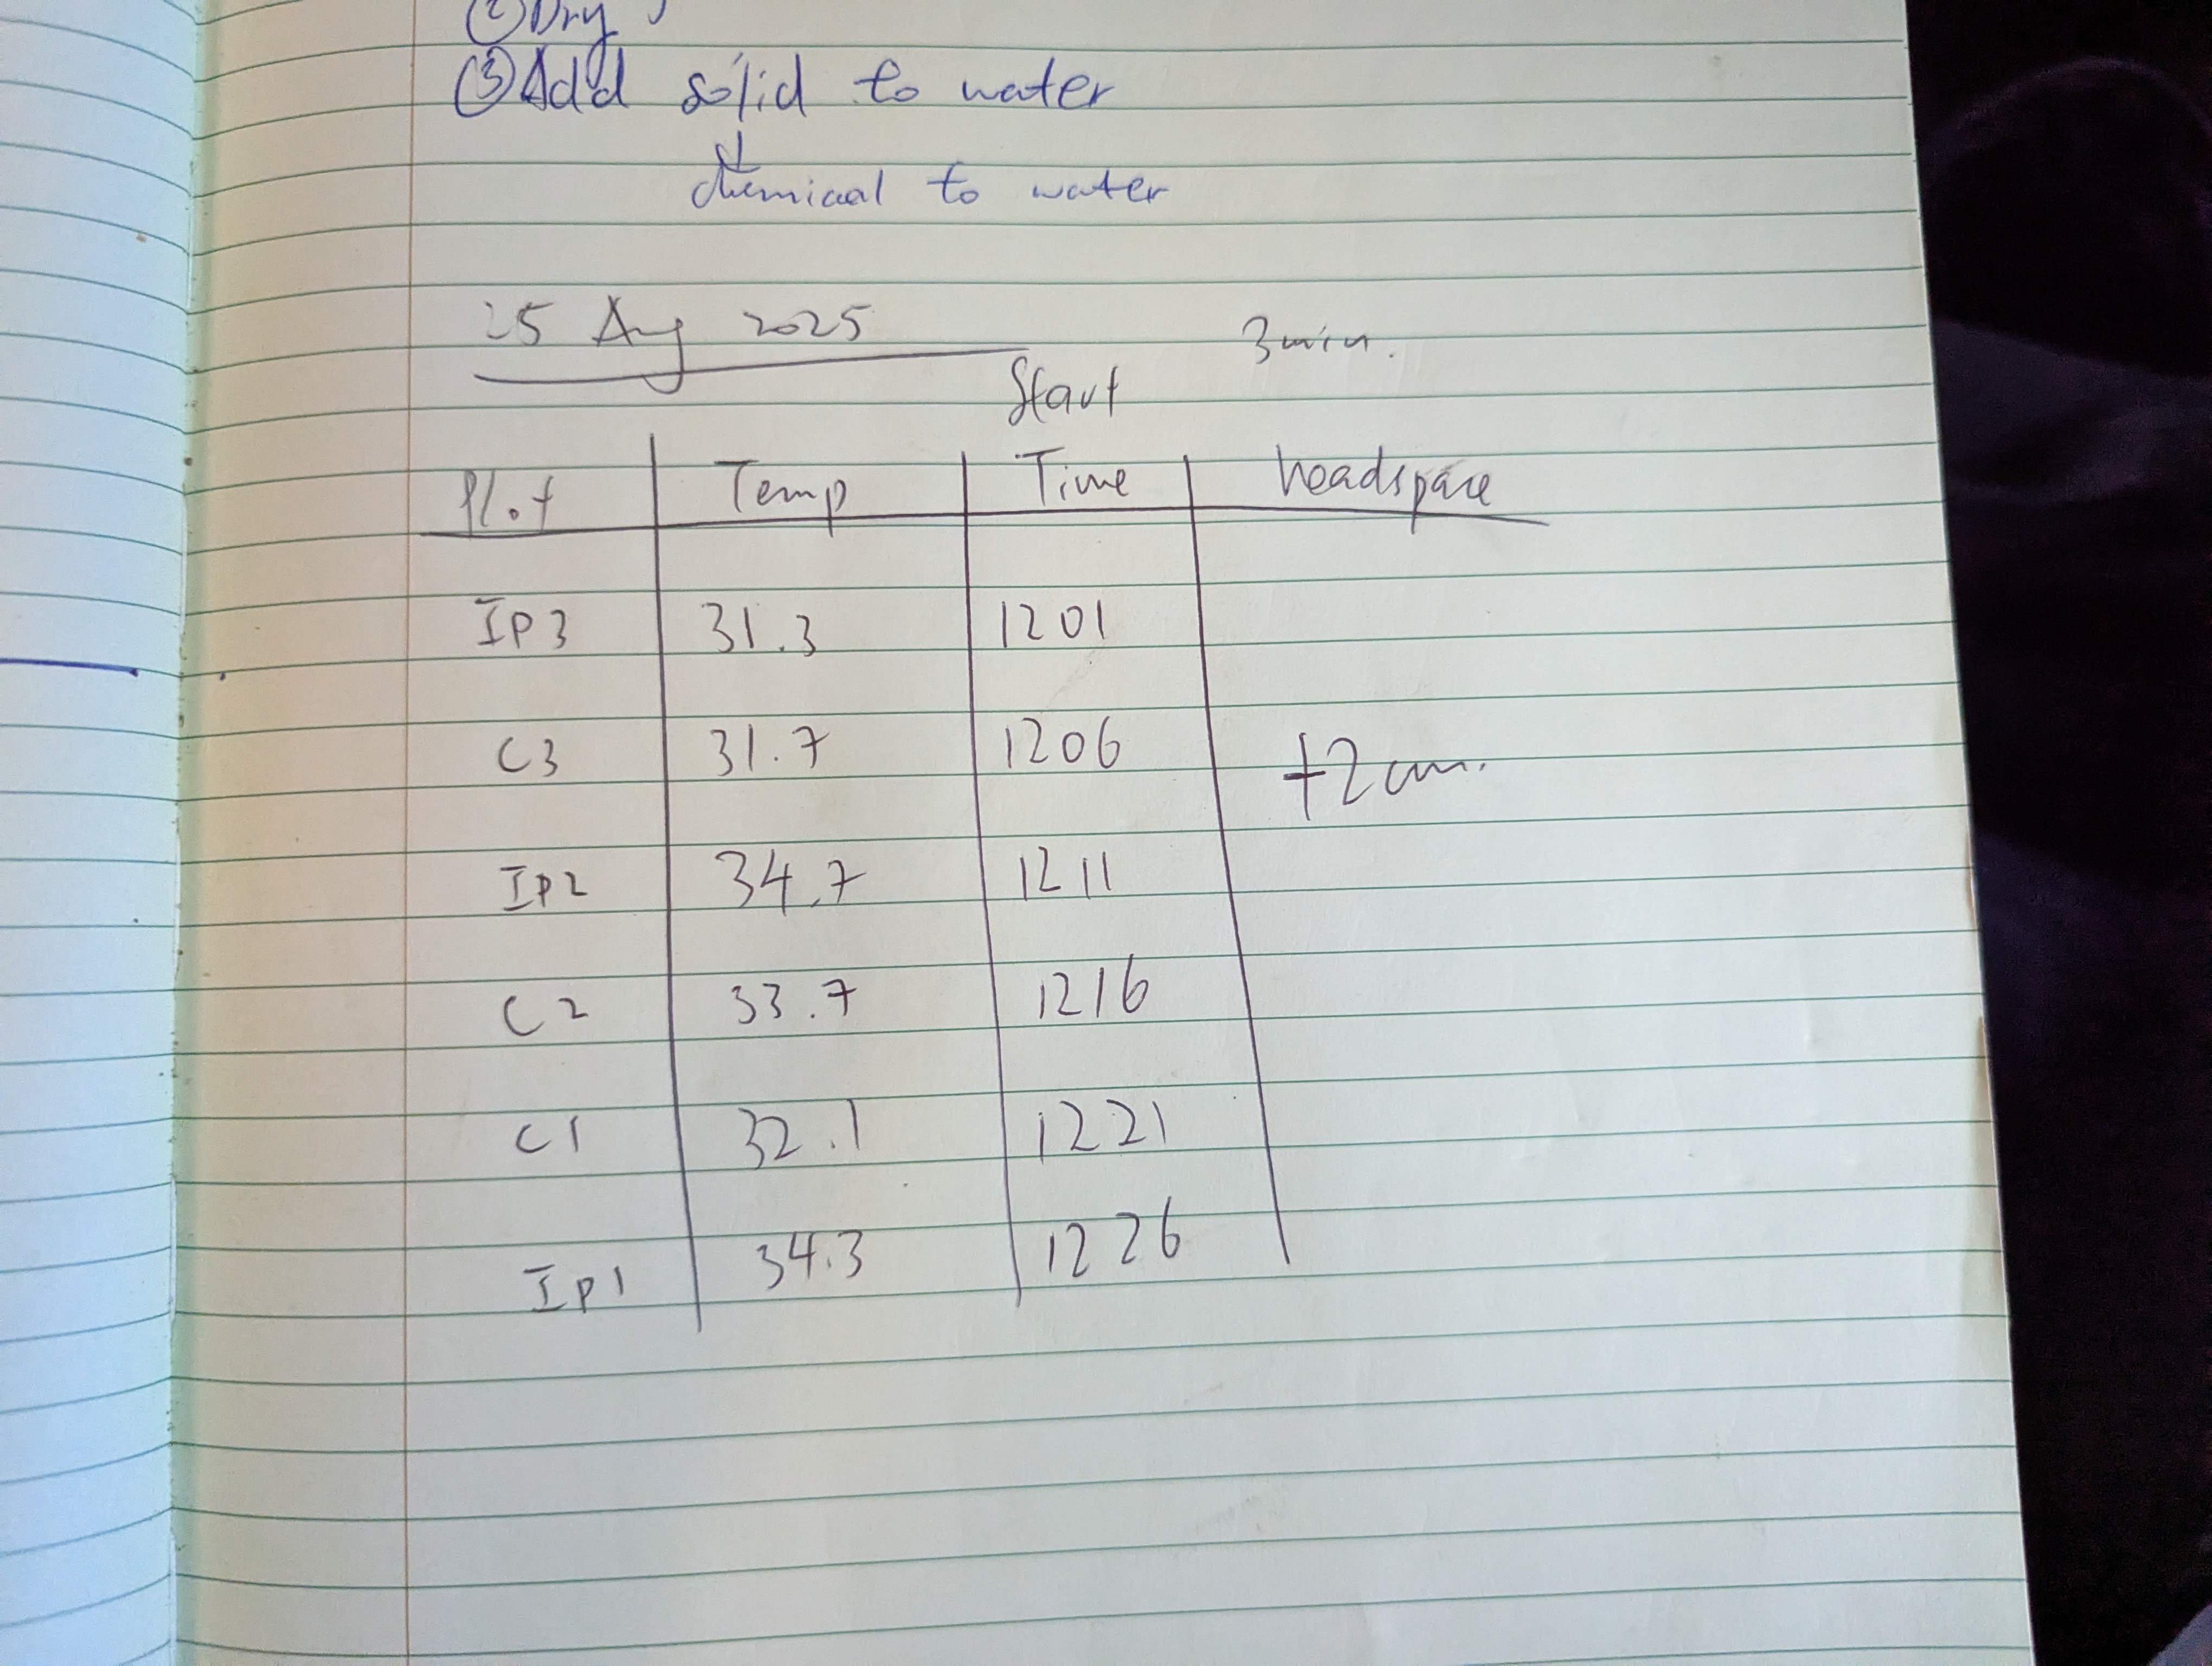 ② Dry
③ Add solid to water
↓
chemical to water
25 Aug 2025 3min.
Start
Plot Temp Time headspace
IP3 31.3 1201
C3 31.7 1206 +2cm.
IP2 34.7 1211
C2 33.7 1216
C1 32.1 1221
IP1 34.3 1226